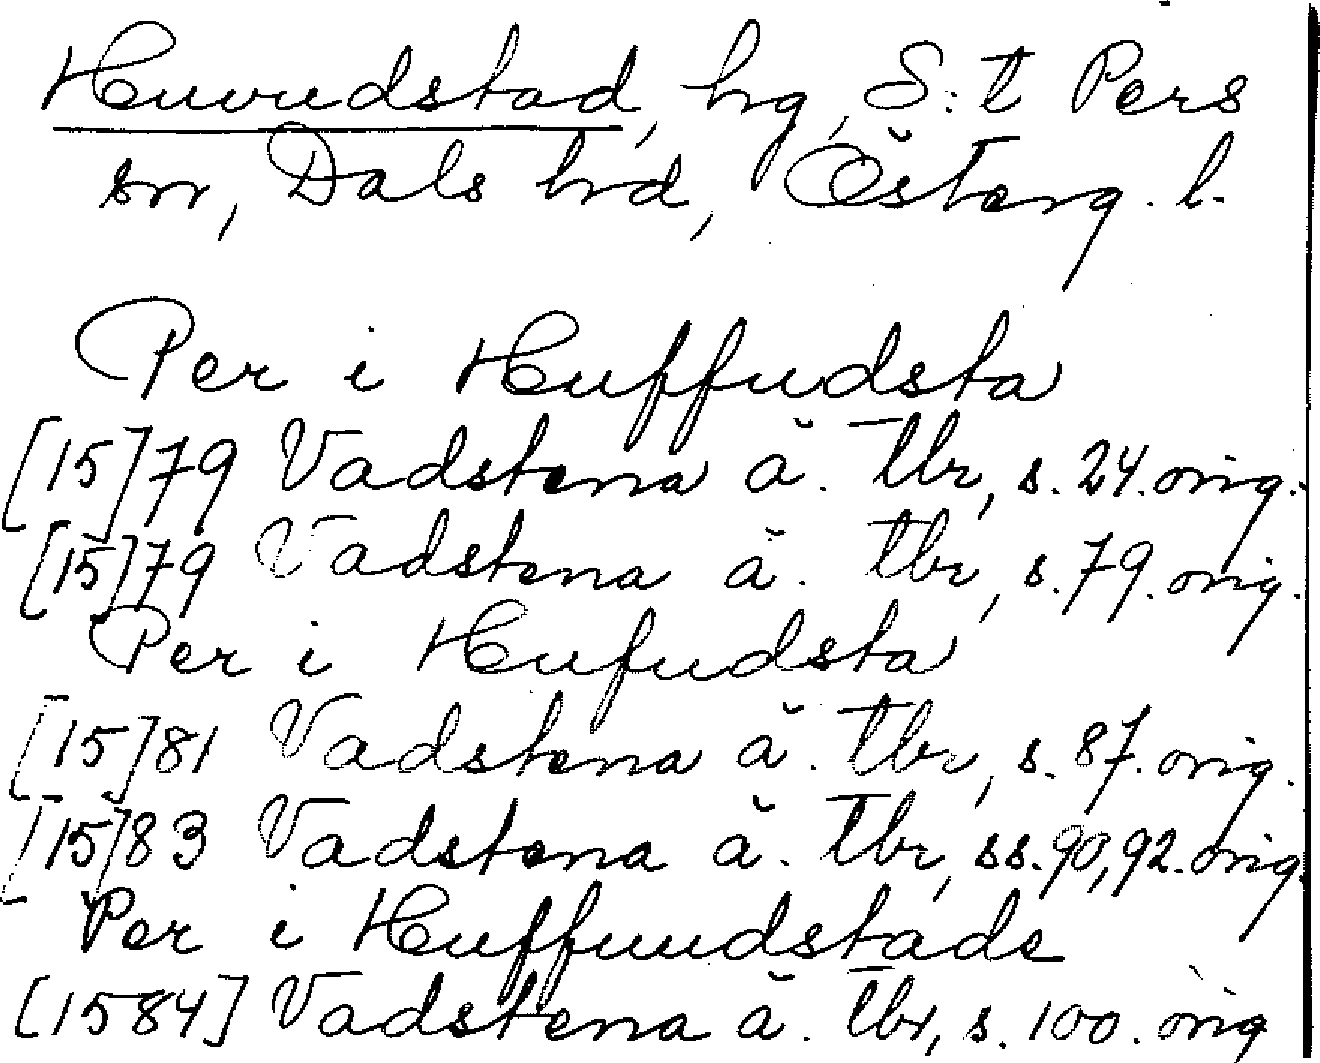 Huvudstad, hg, S:t Pers
sn, Dals hrd, Österg. l.
Per i Huffudsta
[15]79 Vadstena ä. tbr, s. 24. orig.
[15]79 Vadstena ä. tbr, s. 79. orig.
Per i Hufudsta
[15]81 Vadstena ä. tbr, s. 87. orig.
[15]83 Vadstena ä. tbr, ss. 90, 92. orig.
Per i Huffuudstade
[1584] Vadstena ä. tbr, s. 100. orig